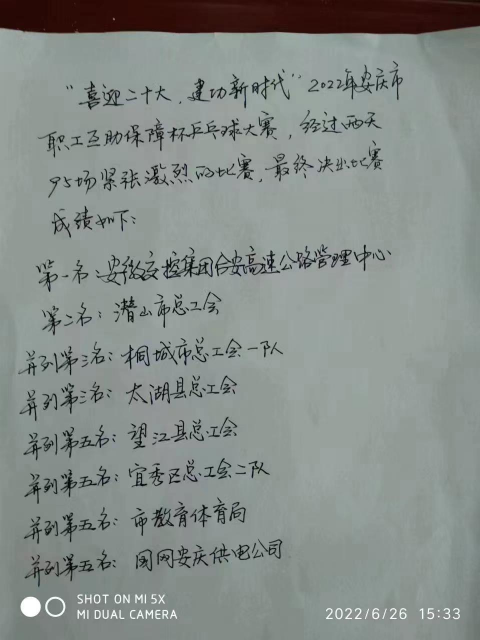 “喜迎二十大，建功新时代”2022年安庆市
职工互助保障杯乒乓球大赛，经过两天
95场紧张激烈的比赛，最终决出比赛
成绩如下：
第一名：安徽交控集团合安高速公路管理中心
第二名：潜山市总工会
并列第三名：桐城市总工会一队
并列第三名：太湖县总工会
并列第五名：望江县总工会
并列第五名：宜秀区总工会二队
并列第五名：市教育体育局
并列第五名：国网安庆供电公司
SHOT ON MI 5X
MI DUAL CAMERA
2022/6/26 15:33